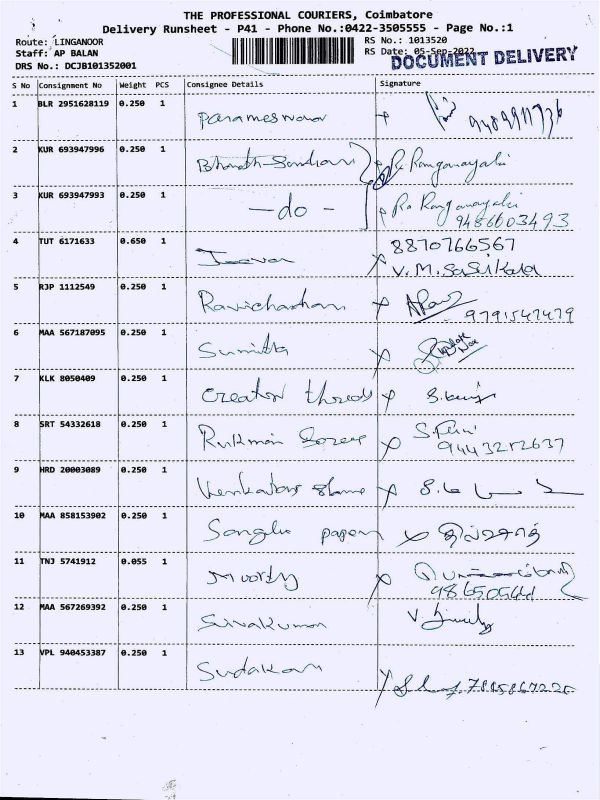 THE PROFESSIONAL COURIERS, Coimbatore
Delivery Runsheet - P41 - Phone No.:0422-3505555 - Page No.:1
Route: LINGANOOR
RS No.: 1013520
Staff: AP BALAN
RS Date: 05-Sep-2022
DOCUMENT DELIVERY
DRS No.: DCJB101352001
S No Consignment No Weight PCS Consignee Details Signature
1 BLR 2951628119 0.250 1 Parameswar
2 KUR 693947996 0.250 1 Bharath Ra Ranganayaki
3 KUR 693947993 0.250 1 - do - Ra Ranganayaki
9486603493
4 TUT 6171633 0.650 1 Jeevan 8870766567
V.M. Sasikala
5 RJP 1112549 0.250 1 Ravichandran
9791547479
6 MAA 567187095 0.250 1 Sumitha
7 KLK 8050409 0.250 1 Creation threads
8 SRT 54332618 0.250 1 Rukmani
9443212637
9 HRD 20003089 0.250 1
10 MAA 858153902 0.250 1 papers
11 TNJ 5741912 0.055 1 Moorthy
12 MAA 567269392 0.250 1 Sivakumar
13 VPL 940453387 0.250 1 Sudakar